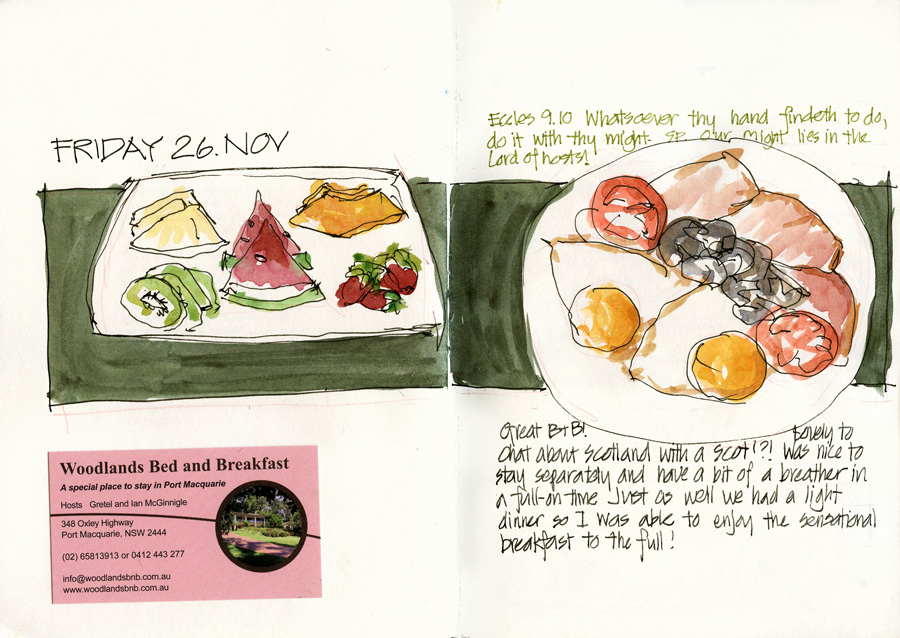 FRIDAY 26.NOV
Woodlands Bed and Breakfast
A special place to stay in Port Macquarie
Hosts Gretel and Ian McGinnigle
348 Oxley Highway
Port Macquarie, NSW 2444
(02) 65813913 or 0412 443 277
info@woodlandsbnb.com.au
www.woodlandsbnb.com.au
Eccles 9.10 Whatsoever thy hand findeth to do,
do it with thy might. Our might lies in the
Lord of hosts!
Great B+B! Lovely to
chat about Scotland with a Scot!?! Was nice to
stay separately and have a bit of a breather in
a full-on time. Just as well we had a light
dinner so I was able to enjoy the sensational
breakfast to the full!